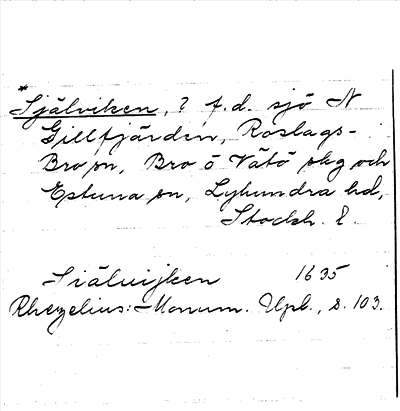 *Själviken, ? f.d. sjö N
Gillfjärden, Roslags-
Bro sn, Bro o Vätö skg och
Estuna sn, Lyhundra hd,
Stockh. l.
Siäluijken 1635
Rhezelius: Monum. Upl., s. 103.